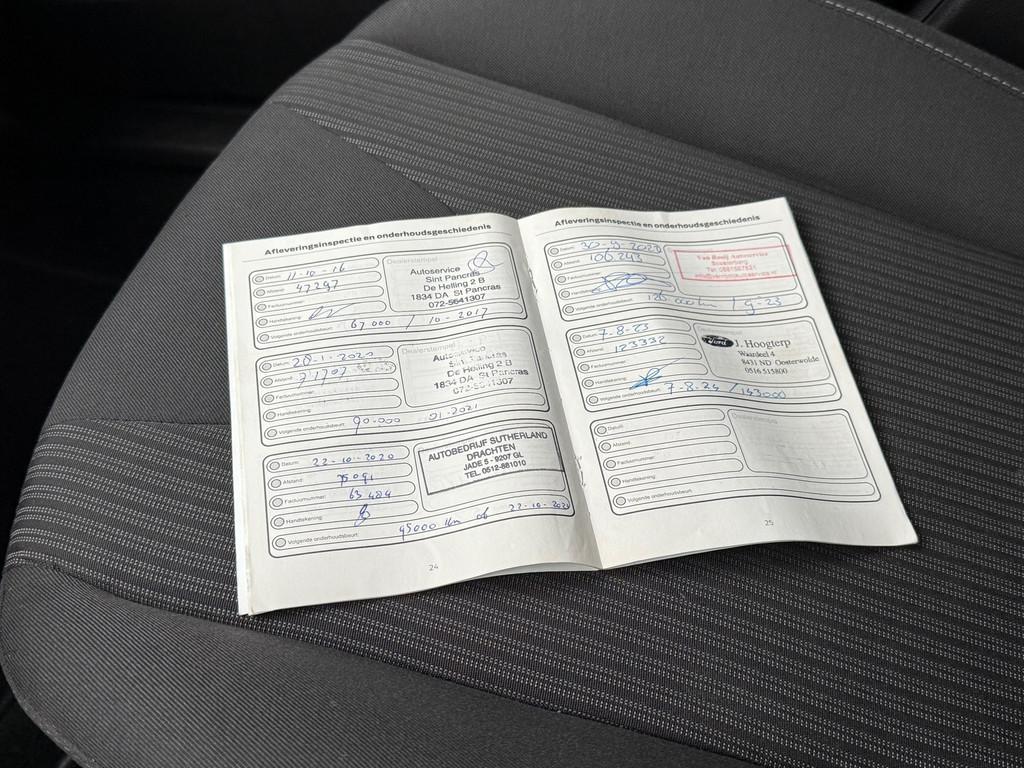 Afleveringsinspectie en onderhoudsgeschiedenis
Datum: 11-10-16
Afstand: 47297
Factuurnummer:
Handtekening:
Volgende onderhoudsbeurt: 67000 / 10-2017
Dealerstempel
Autoservice
Sint Pancras
De Helling 2 B
1834 DA St Pancras
072-5641307
Datum: 20-1-2020
Afstand: 71707
Factuurnummer:
Handtekening:
Volgende onderhoudsbeurt: 90-000 01-2021
Dealerstempel
Autoservice
Sint Pancras
De Helling 2 B
1834 DA St Pancras
072-5641307
Datum: 22-10-2020
Afstand:
Factuurnummer: 63484
Handtekening:
Volgende onderhoudsbeurt: 95000 km of 22-10-2021
AUTOBEDRIJF SUTHERLAND
DRACHTEN
JADE 5 - 9207 GL
TEL. 0512-881010
24
Afleveringsinspectie en onderhoudsgeschiedenis
Datum: 30-9-2022
Afstand: 106243
Factuurnummer:
Handtekening:
Volgende onderhoudsbeurt: / 9-23
Van Rooij Autoservice
Datum: 7-8-23
Afstand: 123332
Factuurnummer:
Handtekening:
Volgende onderhoudsbeurt: 7-8-24 / 143000
Dealerstempel
Ford J. Hoogterp
Waardeel 4
8431 ND Oosterwolde
0516 515800
Datum:
Afstand:
Factuurnummer:
Handtekening:
Volgende onderhoudsbeurt:
Dealerstempel
25